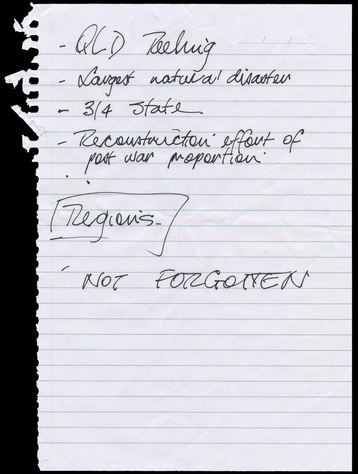 - QLD Reeling
- Largest natural disaster
- 3/4 State
- Reconstruction effort of
post war proportion.
Regions -
NOT FORGOTTEN